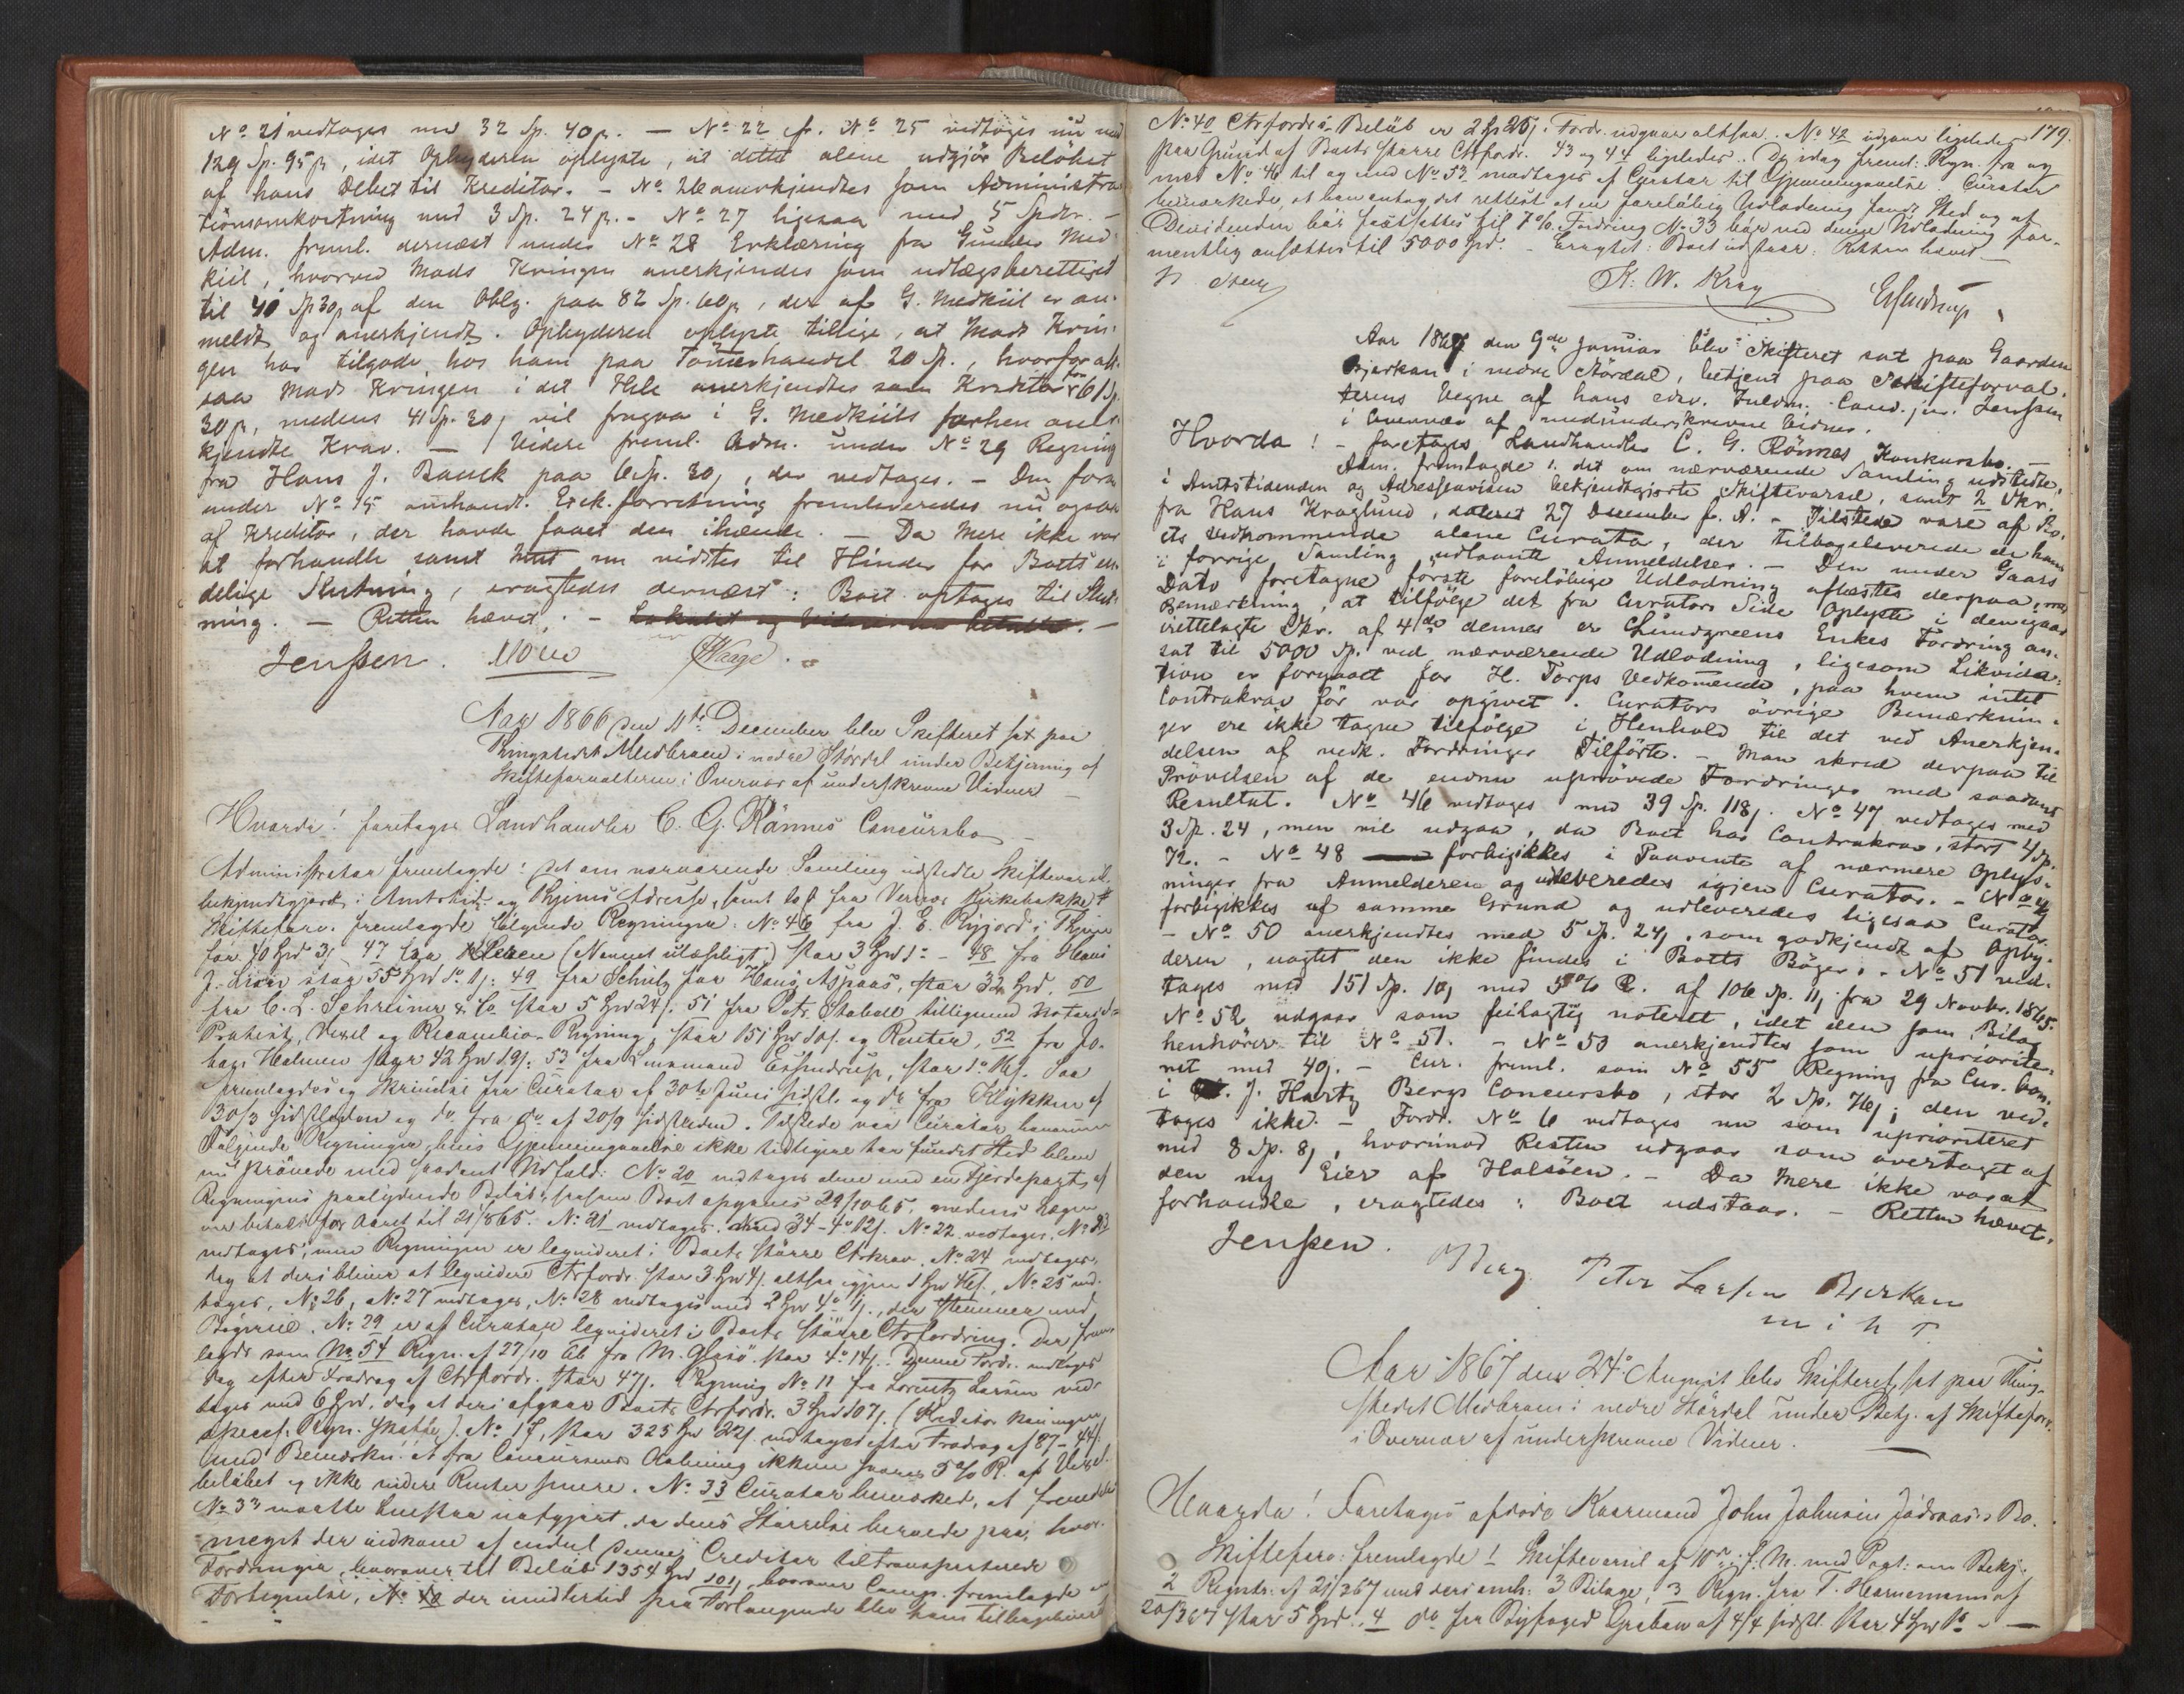 No 21 vedtoges med 32 Sp. 40 β. — No 22 cfr. No 25 vedtoges nu med
129 Sp. 95 β, idet Opbyderen oplyste, at dette alene udgjör Belöbet
af hans Debet til Kreditor. — No 26 anerkjendtes som Administra-
tionsomkostning med 3 Sp. 24 β. — No 27 ligesaa med 5 Spdr. —
Adm. freml. dernæst under No 28 Erklæring fra Gunder Med-
kiil, hvorved Mads Kringen anerkjendes som udlægsberettiget
til 40 Sp 30 β af den Oblg. paa 82 Sp. 60 β, der af G. Medkiil er an-
meldt og anerkjendt. Opbyderen oplyste tillige, at Mads Krin-
gen har tilgode hos ham paa Tömmerhandel 20 Sp., hvorfor alt-
saa Mads Kringen i det Hele anerkjendtes som Kreditor for 61 Sp.
30 β, medens 41 Sp. 30 β vil fragaa i G. Medkiils forhen aner-
kjendte Krav. — Videre freml. Adm. under No 29 Regning
fra Hans J. Banck paa 6 Sp. 30 β, der vedtages. — Den forn
under No 15 omhandl. Exek. forretning fremleveredes nu ogsaa
af Kreditor, der havde faaet den ihænde. — Da Mere ikke var
at forhandle samt Intet nu vidstes til Hinder for Boets en-
delige Slutning, eragtedes dernæst: Boet optages til Slut-
ning. — Retten hævet. — Lokalet og Vidnerne betalte. —
Jenssen. Moen Waage.
Aar 1866 den 11te December blev Skifteret sat paa
Thingstedet Medbraen i nedre Stördal under Betjening af
Skifteforvalteren i Overvær af underskrevne Vidner —
Hvorda! foretages Landhandler C. G. Rönnes Concursbo —
Administrator fremlagde: det om nærværende Samling udstedte Skiftevarsel
bekjendtgjort i Amtstid. og Thjems Adresse, samt
Skifteforv. fremlagde følgende Regninger: No 46 fra J. E. Ryjord i Thjem
for 40 Spd 3 β 47 fra (Navnet ulæseligt) stor 3 Spd 1 - 48 fra Hans
J. stor 55 Spd 49 fra Schulz for Hans Aspaas, stor 32 Spd. 50
fra C. L. Schreiner & Co stor 5 Spd 24 β. 51 fra Petr. Stabell tilligemed Notarial
Protest, Vexel og Recambio-Regning, stor 151 Spd 10 β. og Renter, 52 fra Jo-
han Halmen stor 42 Spd 53 fra Lensmand Essendrup, stor
fremlagdes og Skrivelse fra Curator af 30te Juni sidstl. og do fra Klykken af
30/3 sidstleden og do fra do af 20/9 sidstleden. Tilstede var Curator
Følgende Regninger, hvis Gjennemgaaelse ikke tidligere har fundet Sted blev
nu prövede med saadant Udfald: No 20 vedtages alene med en Fjerdepart af
Regningens paalydende Belöb, saasom Boet opgaves 29/10 65, medens Lægen
var betalt for Aaret til 21/865. No 21 vedtages. med 34 - 4 12 β. No 22 vedtages. No 23
vedtages, men Regningen er leqvideret i Boets större Ctrkrav. No 24 vedtages,
dog at deri bliver at leqvidere Ctrfordr. stor 3 Spd 4 β. altsaa igjen 1 Spd 46 β., No 25 ved-
tages, No 26, No 27 vedtages, No 28 vedtages med 2 Spd 4 β., der stemmer med
Bögerne. No 29 er af Curator leqvideret i Boets större Ctrfordring. Der frem-
lagdes som No 54 Regn. af 27/10 66 fra M. stor 4 14 β. Denne Fordr. vedtages
dog efter Fradrag af Ctrfordr. stor 47 β. Regning No 11 fra Lorentz Larsen ved-
tages med 6 Spd. dog at deri afgaar Boets Ctrfordr. 3 Spd 107 β. (Kreditor kan ingen
specif. Regn. skaffe). No 17, stor 325 Spd 22 β. vedtages efter Fradrag af 87 - 44 β.
med Bemærkn. at fra Concursens Aabning ikkun svares 5% R. af Vexel-
belöbet og ikke videre Renter svares. No 33 Curator bemærked, at
No 33 maatte henstaa uafgjort, da dens Störrelse beroede paa, hvor
meget der indkom af endel denne Creditor tiltransporterede
Fordringer, hvorover til Belöb 1354 Spd 101 β, hvorover Comp. fremlagde en
Fortegnelse, No 40 der imidlertid paa Forlangende blev ham tilbageleveret
179.
No 40 Ctrfordr.s Belöb er 2 Sp 25 β: Fordr. udgaar altsaa. No 42 udgaar ligeledes
paa Grund af Boets större Ctrfordr. 43 og 44 ligeledes. De idag freml. Regn. fra og
med No 46 til og med No 53 modtages af Curator til Gjennemgaaelse. Curator
bemærkede, at han antog det rettest at en foreløbig Udlodning fandt Sted og at
Dividenden bör fastsættes til 7%. Fordring No 33 bör ved denne Udlodning for-
mentlig ansættes til 5000 Spd. — Eragtet: Boet udstaar. Retten hævet —
K. W. Krag Essendrup
Aar 1867 den 9de Januar blev Skifteret sat paa Gaarden
Bjerkan i nedre Stördal, betjent paa Skifteforval-
terens Vegne af hans edsv. Fuldm. Cand. jur. Jenssen
i Overvær af medunderskrevne Vidner.
Hvorda! — foretages Landhandler C. G. Rönnes Konkursbo. —
Adm. fremlagde 1. det om nærværende Samling udstedte,
i Amtstidenden og Adresseavisen bekjendtgjorte Skiftevarsel, samt 2 Skr.
fra Hans Kraglund, dateret 27 December f. A. — Tilstede vare af Bo-
ets Vedkommende alene Curator, der tilbageleverede de ham
i forrige Samling udlaante Anmeldelser. — Den under Gaars
Dato foretagne förste foreløbige Udlodning aflæstes derpaa, med
Bemærkning, at tilfölge det fra Curators Side Oplyste i den igaar
irettelagte Skr. af 4de dennes er Lundgreens Enkes Fordring an-
sat til 5000 Sp. ved nærværende Udlodning, ligesom Likvida-
tion er foregaaet for H. Torps Vedkomende, paa hvem intet
Contrakrav för var opgivet. Curators övrige Bemærknin-
ger ere ikke tagne tilfölge i Henhold til det ved Anerkjen-
delsen af vedk. Fordringer Tilförte. — Man skred derpaa til
Prövelsen af de endnu uprövede Fordringer med saadant
Resultat. No 46 vedtoges med 39 Sp. 118 β. No 47 vedtages med
3 Sp. 24, men vil udgaa, da Boet har Contrakrav, stort 4 Sp.
72. — No 48 forbigikkes i Paavente af nærmere Oplys-
ninger fra Anmelderen og udleveredes igjen Curator. — No 49
forbigikkes af samme Grund og udleveredes ligesaa Curator.
— No 50 anerkjendtes med 5 Sp. 24 β, som godkjendt af Opby-
deren, uagtet den ikke findes i Boets Böger. — No 51 ved-
tages med 151 Sp. 10 β med 5% R. af 106 Sp. 11 β fra 29 Novbr. 1865.
No 52 udgaar som feilagtig noteret, idet den som Bilag
henhörer til No 51. — No 53 anerkjendtes som upriorite-
ret med 40 β. — Cur. freml. som No 55 Regning fra Cur. bon.
i J. Hartz Bergs Concursbo, stor 2 Sp. 76 β; den ved-
tages ikke. — Fordr. No 6 vedtages nu som uprioriteret
med 8 Sp. 8 β, hvorimod Resten udgaar som overtaget af
den ny Eier af Halsöen. — Da Mere ikke var at
forhandle, eragtedes: Boet udstaar. — Retten hævet.
Jenssen. Peter Larsen Bjerkan
Aar 1867 den 24 August blev Skifteret sat paa Thing-
stedet Medbraen i nedre Stördal under Betj. af Skifteforv.
i Overvær af underskrevne Vidner. —
Hvorda! Foretages afdöde Kaarmand John Johnsen Jådraas's Bo.
Skifteforv. fremlagde 1 Skiftevarsel af 10de f. M. med Pagt. om Bekj.
2 Registr. af 21/3 67 med deri omh. 3 Bilage, 3 Regn. fra T. af
20/3 67 stor 5 Spd., 4 do fra Byfoged af 4/4 sidstl. stor 4 Spd